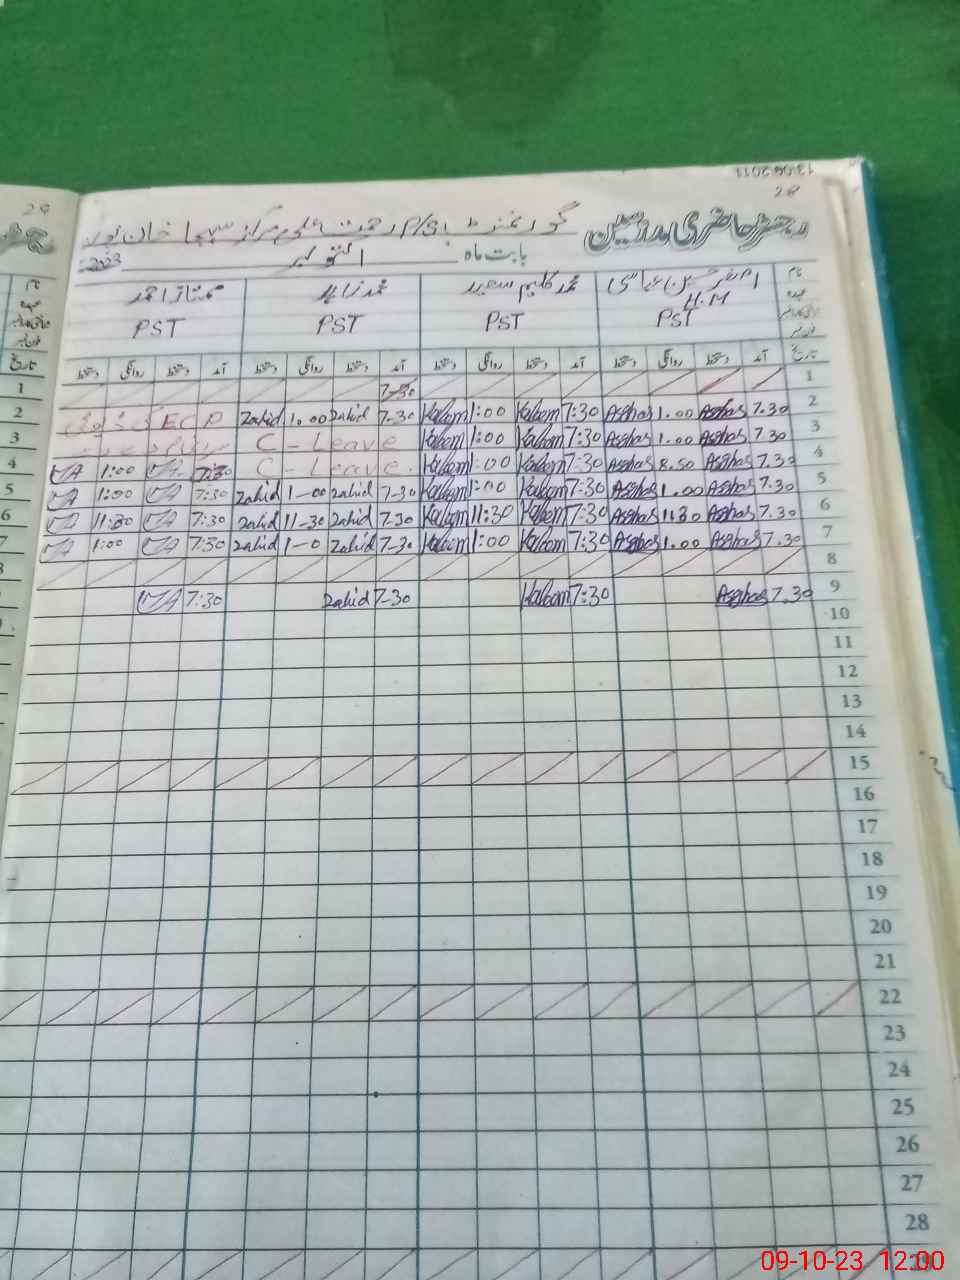 13.09.2011
24
28
رجسٹر حاضری مدرسین
گورنمنٹ P/S رحمت علی مرکز سہجا خان پور
بابت ماہ اکتوبر 2023
نام
عہدہ
اصغر حسین عباسی
محمد کلیم سعید
محمد زاہد
ممتاز احمد
H.M
PST PST PST PST
تاریخ آمد دستخط روانگی دستخط آمد دستخط روانگی دستخط آمد دستخط روانگی دستخط آمد دستخط روانگی دستخط
7-30 1
ECP Zahid 1.00 Zahid 7-30 Kaleem 1:00 Kaleem 7:30 Asghar 1.00 Asghar 7.30 2
C - Leave Kaleem 1:00 Kaleem 7:30 Asghar 1.00 Asghar 7.30 3
1:00 7:30 C - Leave. Kaleem 1:00 Kaleem 7:30 Asghar 8.50 Asghar 7.30 4
1:00 7:30 Zahid 1-00 Zahid 7-30 Kaleem 1:00 Kaleem 7:30 Asghar 1.00 Asghar 7.30 5
11:30 7:30 Zahid 11-30 Zahid 7-30 Kaleem 11:30 Kaleem 7:30 Asghar 11.30 Asghar 7.30 6
1:00 7:30 Zahid 1-0 Zahid 7-30 Kaleem 1:00 Kaleem 7:30 Asghar 1.00 Asghar 7.30 7
8
7:30 Zahid 7-30 Kaleem 7:30 Asghar 7.30 9
10
11
12
13
14
15
16
17
18
19
20
21
22
23
24
25
26
27
28
29
09-10-23 12:00